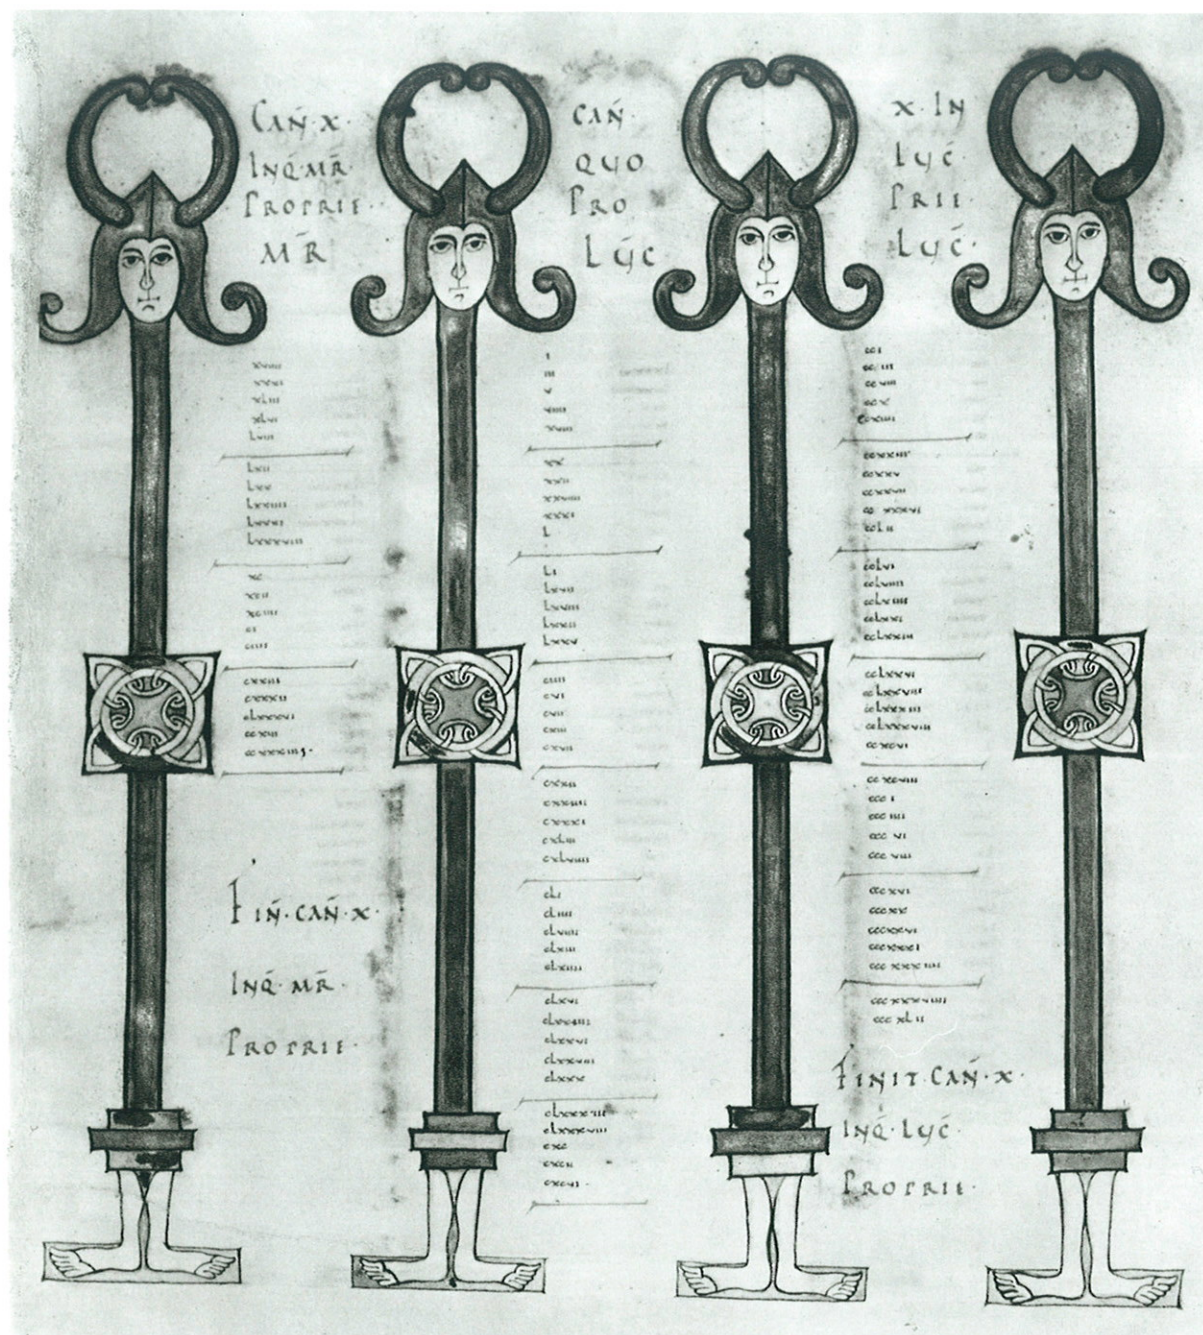 CAN̄·X·
INQ̄·MR̄·
PROPRIE·
MR̄
xviiii
xxxi
xliii
xlvi
lviii
lxii
lxx
lxxiiii
lxxxi
lxxxviii
xc
xcii
xciiii
ci
ciiii
cxxiii
cxxxii
clxxxvi
ccxiii
FIN̄·CAN̄·X·
INQ̄·MR̄·
PROPRIE·
CAN̄·
QUO
PRO
LUC̄
i
iii
v
viiii
xviii
xx
xxii
xxviiii
xxxi
l
li
lxvii
lxviii
lxxii
lxxv
ciiii
cvi
cvii
cxiii
cxvii
cxxii
cxxiiii
cxxxi
cxliii
cxlviiii
cli
cliiii
clviiii
clxiii
clxiiii
clxvi
clxxiiii
clxxvi
clxxviii
clxxx
clxxxiii
clxxxviii
cxc
cxcii
cxcvi·
X·IN
LUC̄·
PRIE·
LUC̄·
cci
cciii
ccviii
ccx
ccxiii
ccxxiii
ccxxv
ccxxvii
ccxxxvi
cclii
cclvi
cclviiii
cclxiiii
cclxxi
cclxxiii
cclxxvi
cclxxviii
cclxxxiii
cclxxxviii
ccxcvi
ccxcviii
ccci
ccciiii
cccvi
cccviii
cccxvi
cccxx
cccxxvi
cccxxxi
cccxxxiiii
cccxxxviiii
cccxlii
FINIT·CAN̄·X·
INQ̄·LUC̄·
PROPRIE·